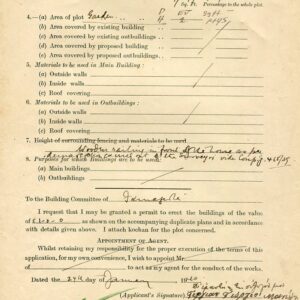 sq. ft. Percentage to the whole plot.
4.—(a) Area of plot Garden
(b) Area covered by existing building
(c) Area covered by existing outbuildings
(d) Area covered by proposed building
(e) Area covered by proposed outbuildings
5. Materials to be used in Main Building :
(a) Outside walls
(b) Inside walls
(c) Roof covering
6. Materials to be used in Outbuildings :
(a) Outside walls
(b) Inside walls
(c) Roof covering
7. Height of surrounding fencing and materials to be used
Wooden railing in front of the house as per
8. Purposes for which Buildings are to be used:
(a) Main buildings
(b) Outbuildings
To the Building Committee of Famagusta
I request that I may be granted a permit to erect the buildings of the value
of as shown on the accompanying duplicate plans and in accordance
with details given above. I attach kochan for the plot concerned.
Appointment of Agent.
Whilst retaining my responsibility for the proper execution of the terms of this
application, for my own convenience, I wish to appoint Mr
of to act as my agent for the conduct of the works.
Dated the 24th day of January
(Applicant's Signature)